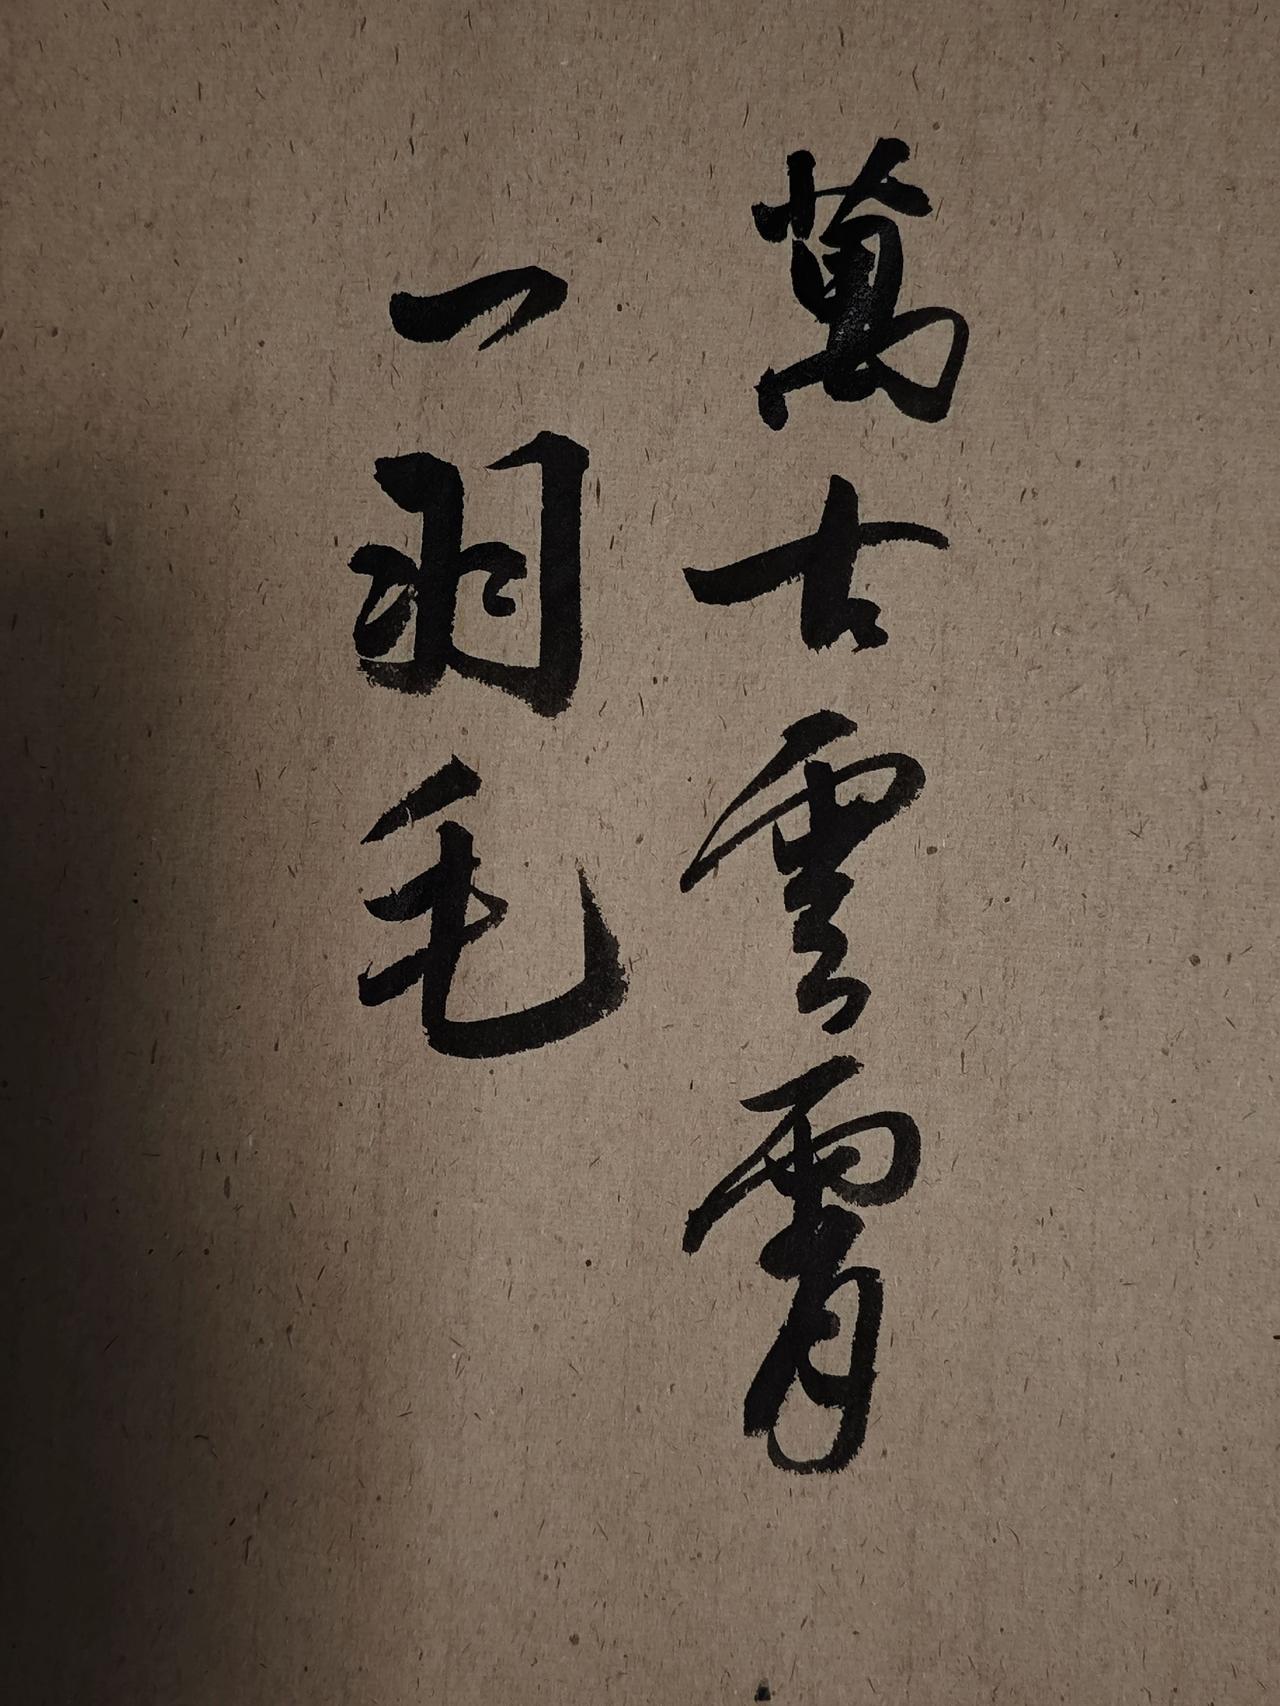 萬古雲霄
一羽毛